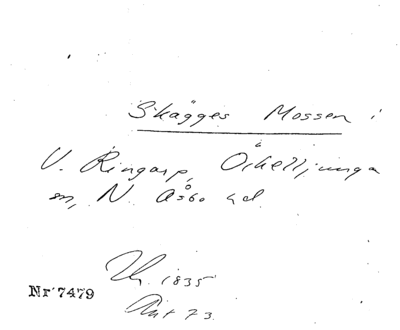 Skägges Mossen i
V. Ringarp, Örkelljunga
sn, N. Åsbo hd.
1835
Nr 7479
Akt 73.